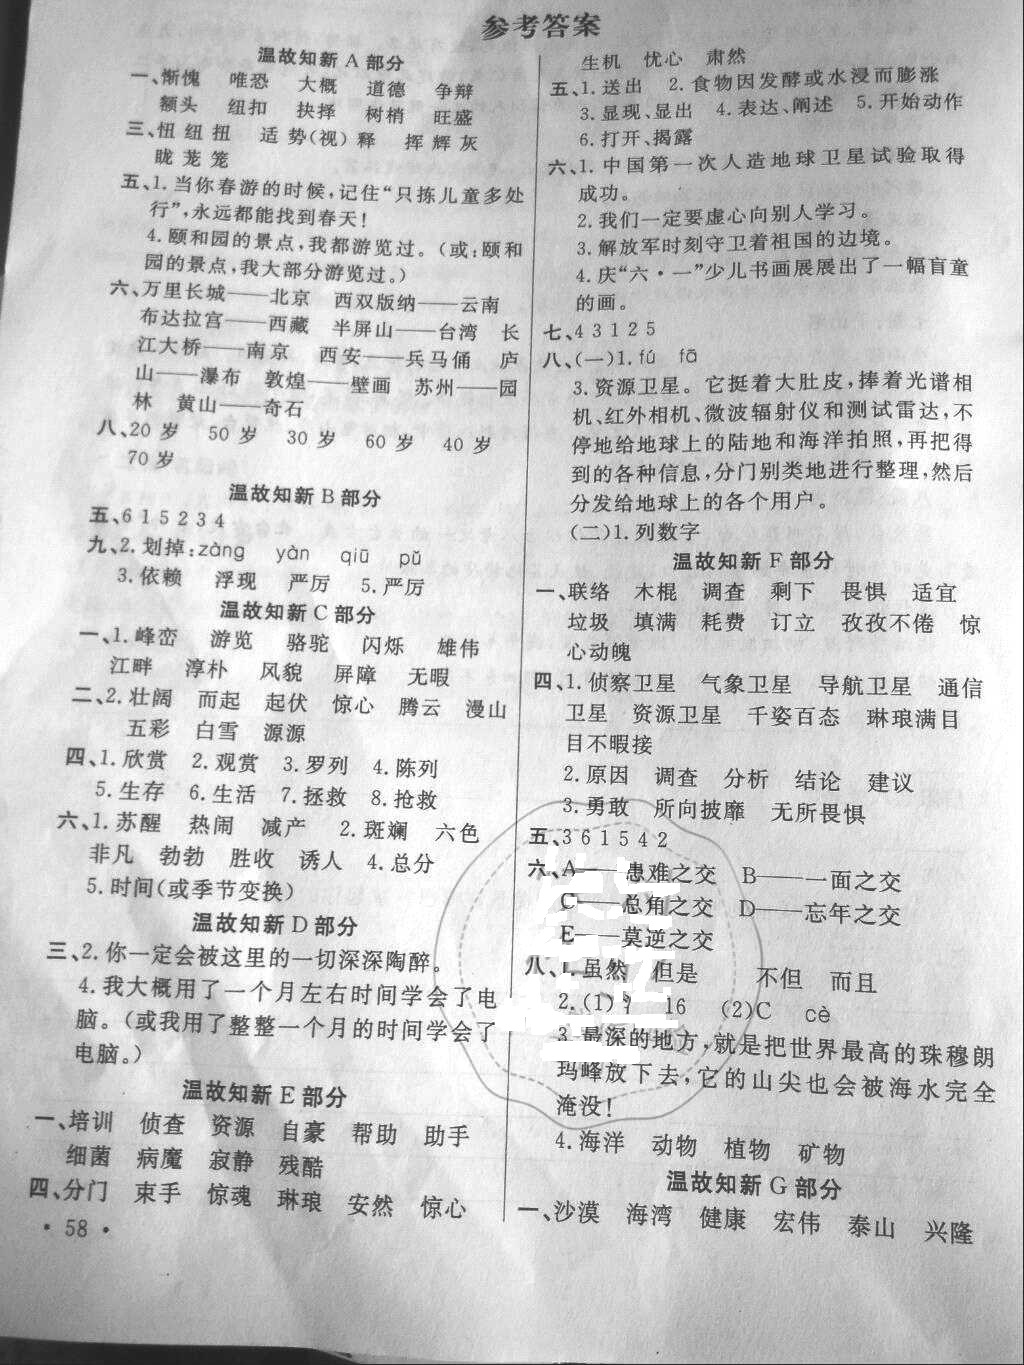 参考答案
温故知新A部分
一、惭愧 唯恐 大概 道德 争辩
额头 纽扣 抉择 树梢 旺盛
三、忸 纽 扭 适 势(视) 释 挥 辉 灰
眬 茏 笼
五、1.当你春游的时候,记住“只拣儿童多处
行”,永远都能找到春天!
4.颐和园的景点,我都游览过。(或:颐和
园的景点,我大部分游览过。)
六、万里长城——北京 西双版纳——云南
布达拉宫——西藏 半屏山——台湾 长
江大桥——南京 西安——兵马俑 庐
山——瀑布 敦煌——壁画 苏州——园
林 黄山——奇石
八、20岁 50岁 30岁 60岁 40岁
70岁
温故知新B部分
五、6 1 5 2 3 4
九、2.划掉:zàng yàn qiū pǔ
3.依赖 浮现 严厉 5.严厉
温故知新C部分
一、1.峰峦 游览 骆驼 闪烁 雄伟
江畔 淳朴 风貌 屏障 无暇
二、2.壮阔 而起 起伏 惊心 腾云 漫山
五彩 白雪 源源
四、1.欣赏 2.观赏 3.罗列 4.陈列
5.生存 6.生活 7.拯救 8.抢救
六、1.苏醒 热闹 减产 2.斑斓 六色
非凡 勃勃 胜收 诱人 4.总分
5.时间(或季节变换)
温故知新D部分
三、2.你一定会被这里的一切深深陶醉。
4.我大概用了一个月左右时间学会了电
脑。(或我用了整整一个月的时间学会了
电脑。)
温故知新E部分
一、培训 侦查 资源 自豪 帮助 助手
细菌 病魔 寂静 残酷
四、分门 束手 惊魂 琳琅 安然 惊心
·58·
生机 忧心 肃然
五、1.送出 2.食物因发酵或水浸而膨涨
3.显现、显出 4.表达、阐述 5.开始动作
6.打开、揭露
六、1.中国第一次人造地球卫星试验取得
成功。
2.我们一定要虚心向别人学习。
3.解放军时刻守卫着祖国的边境。
4.庆“六·一”少儿书画展展出了一幅盲童
的画。
七、4 3 1 2 5
八、(一)1.fú fā
3.资源卫星。它挺着大肚皮,捧着光谱相
机、红外相机、微波辐射仪和测试雷达,不
停地给地球上的陆地和海洋拍照,再把得
到的各种信息,分门别类地进行整理,然后
分发给地球上的各个用户。
(二)1.列数字
温故知新F部分
一、联络 木棍 调查 剩下 畏惧 适宜
垃圾 填满 耗费 订立 孜孜不倦 惊
心动魄
四、1.侦察卫星 气象卫星 导航卫星 通信
卫星 资源卫星 千姿百态 琳琅满目
目不暇接
2.原因 调查 分析 结论 建议
3.勇敢 所向披靡 无所畏惧
五、3 6 1 5 4 2
六、A——患难之交 B——一面之交
C——总角之交 D——忘年之交
E——莫逆之交
八、1.虽然 但是 不但 而且
2.(1) 16 (2)C cè
3.最深的地方,就是把世界最高的珠穆朗
玛峰放下去,它的山尖也会被海水完全
淹没!
4.海洋 动物 植物 矿物
温故知新G部分
一、沙漠 海湾 健康 宏伟 泰山 兴隆